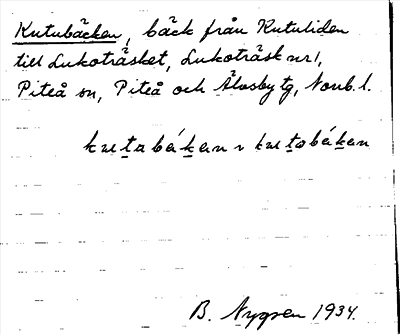 Kutubäcken, bäck från Kutuliden
till Lukoträsket, Lukoträsk nr 1,
Piteå sn, Piteå och Älvsby tg, Norrb. l.
kuṯabáḵan ~ kuṯobáḵan
B. Nygren 1934.